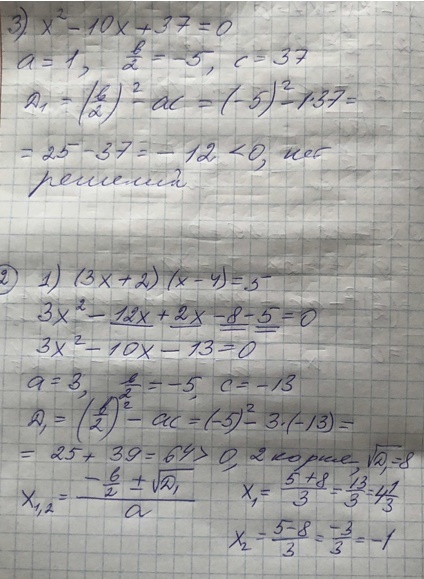 3) x² - 10x + 37 = 0
a = 1, b/2 = -5, c = 37
D₁ = (b/2)² - ac = (-5)² - 1·37 =
= 25 - 37 = - 12 < 0, нет
решений
2) 1) (3x + 2)(x - 4) = 5
3x² - 12x + 2x - 8 - 5 = 0
3x² - 10x - 13 = 0
a = 3, b/2 = -5, c = -13
D₁ = (b/2)² - ac = (-5)² - 3·(-13) =
= 25 + 39 = 64 > 0, 2 корня, √D₁ = 8
x₁,₂ = (-b/2 ± √D₁)/a x₁ = (5+8)/3 = 13/3 = 4 1/3
x₂ = (5-8)/3 = -3/3 = -1